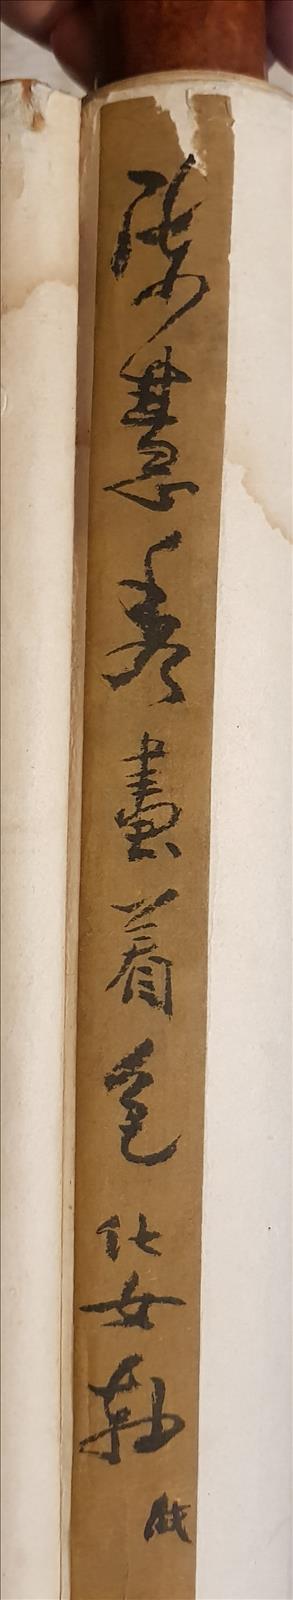 陳慧秀畫着色仕女軸